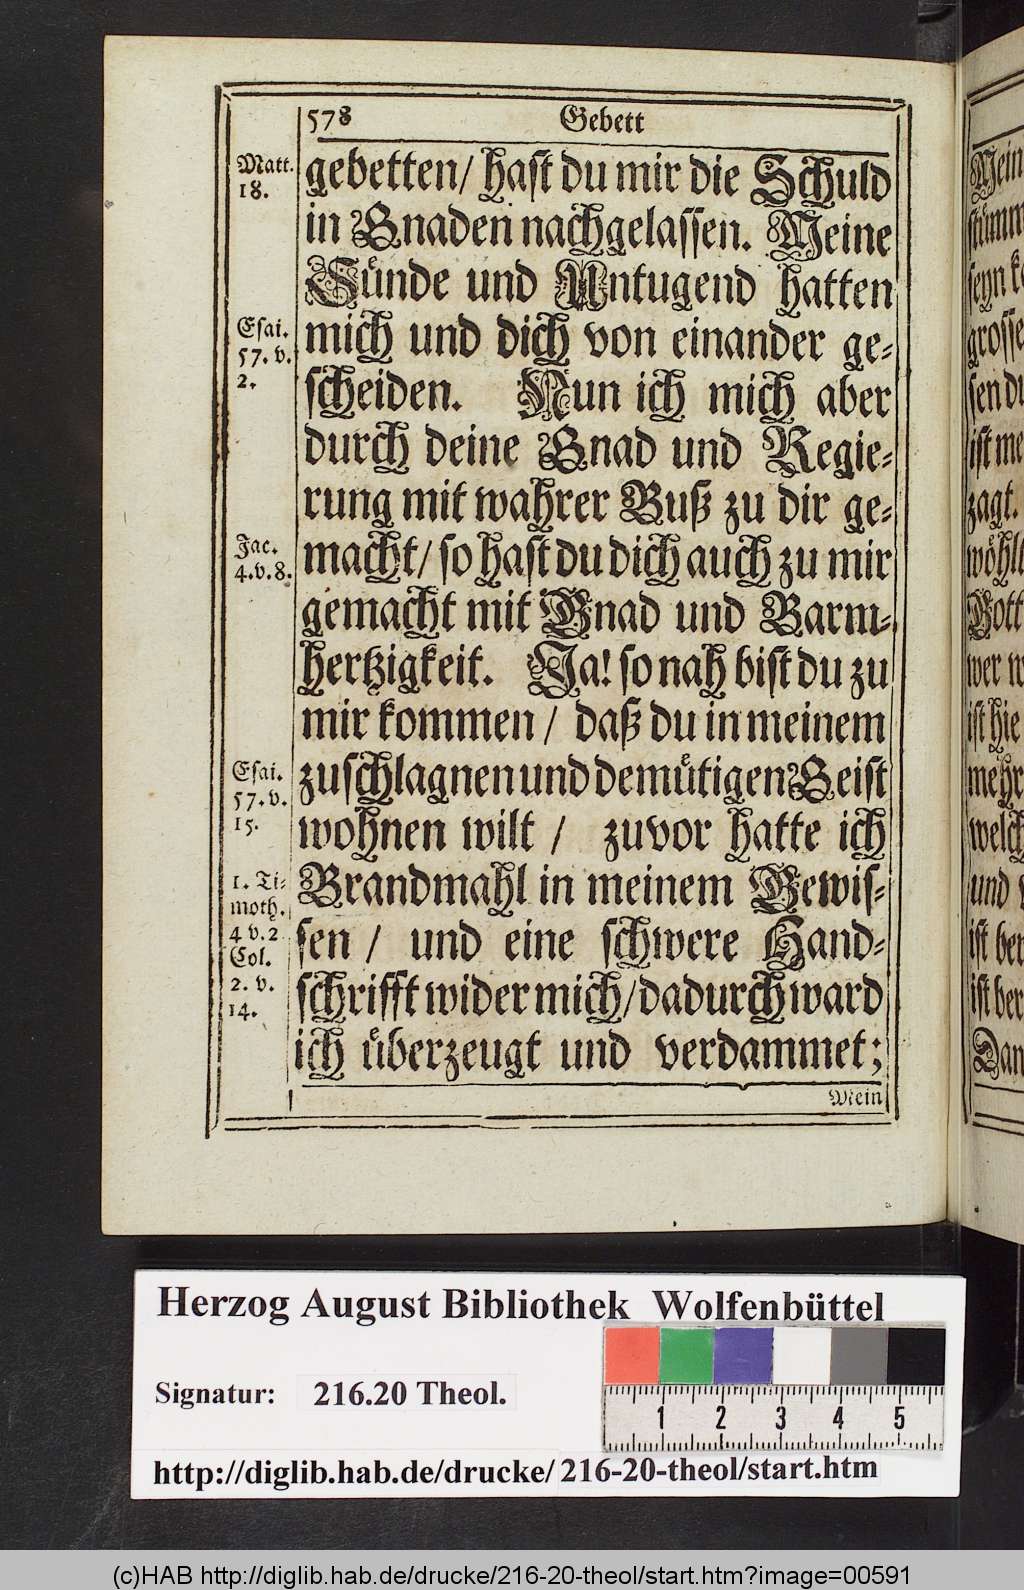 578 Gebett
Matt.
18.
gebetten/ hast du mir die Schuld
in Gnaden nachgelassen. Meine
Sünde und Untugend hatten
Esai.
57. v.
2.
mich und dich von einander ge-
scheiden. Nun ich mich aber
durch deine Gnad und Regie-
rung mit wahrer Buß zu dir ge-
Jac.
4.v.8.
macht/ so hast du dich auch zu mir
gemacht mit Gnad und Barm-
hertzigkeit. Ja! so nah bist du zu
mir kommen / daß du in meinem
Esai.
57. v.
15.
zuschlagnen und demütigen Geist
wohnen wilt / zuvor hatte ich
1. Ti-
moth.
4 v.2
Col.
2. v.
14.
Brandmahl in meinem Gewis-
sen / und eine schwere Hand-
schrifft wider mich/ dadurch ward
ich überzeugt und verdammet;
Mein
Herzog August Bibliothek Wolfenbüttel
Signatur: 216.20 Theol.
1 2 3 4 5
http://diglib.hab.de/drucke/216-20-theol/start.htm
(c)HAB http://diglib.hab.de/drucke/216-20-theol/start.htm?image=00591